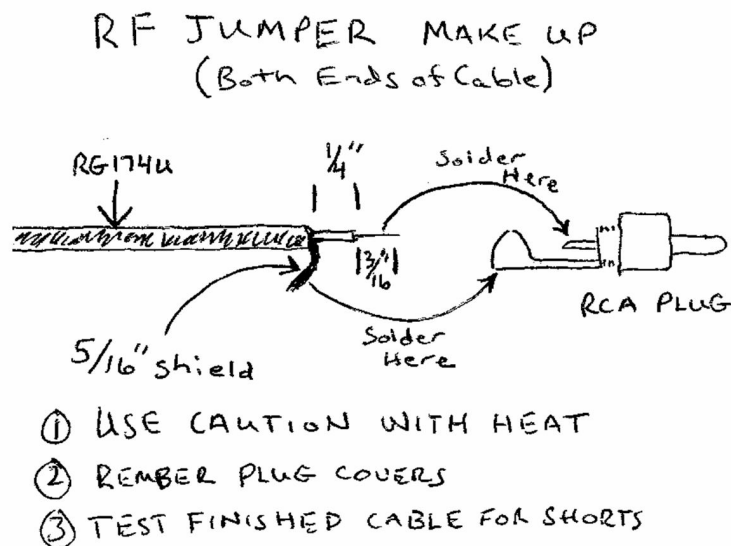 RF JUMPER MAKE UP
(Both Ends of Cable)
RG174U
1/4"
Solder
Here
3/16"
RCA PLUG
Solder
Here
5/16" shield
① USE CAUTION WITH HEAT
② REMBER PLUG COVERS
③ TEST FINISHED CABLE FOR SHORTS